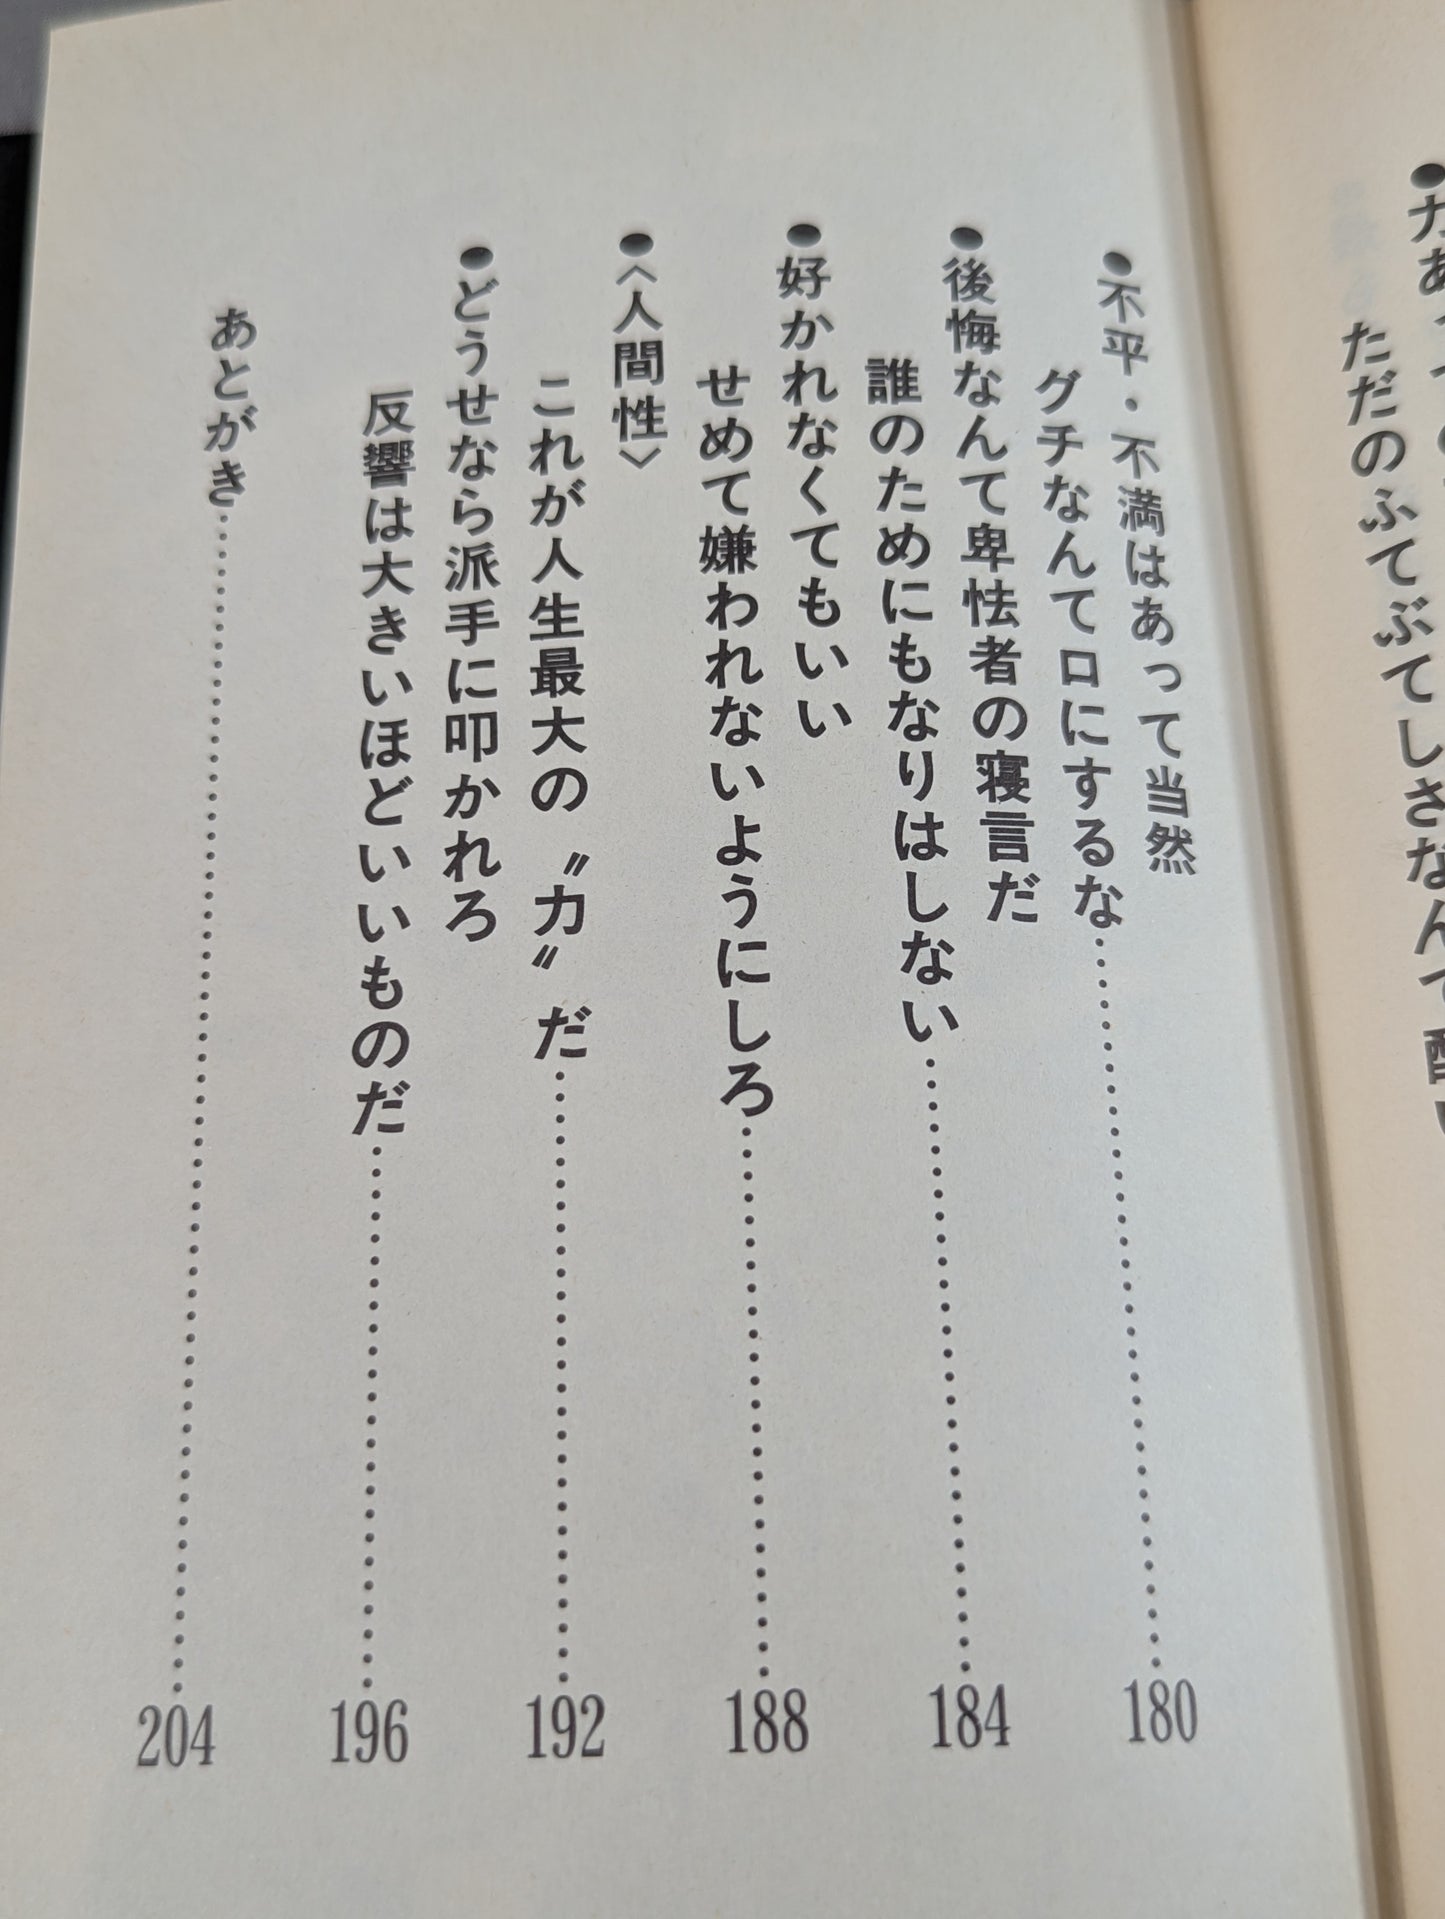 ただのふてぶてしさなんて
●不平・不満はあって当然
グチなんて口にするな……180
●後悔なんて卑怯者の寝言だ
誰のためにもなりはしない……184
●好かれなくてもいい
せめて嫌われないようにしろ……188
●〈人間性〉
これが人生最大の〝力〟だ……192
●どうせなら派手に叩かれろ
反響は大きいほどいいものだ……196
あとがき……204